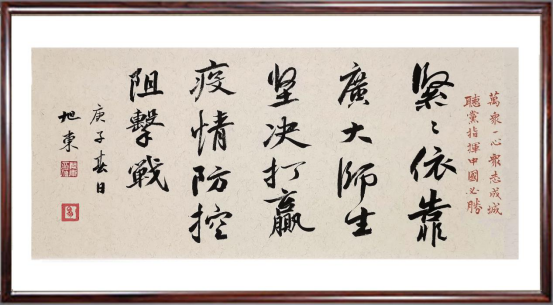 萬衆一心衆志成城
聽黨指揮中國必勝
緊〻依靠
廣大師生
坚决打贏
疫情防控
阻擊戰
庚子春日
旭東